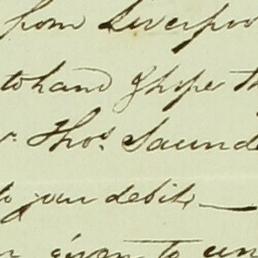 from Liverpoo
to hand & hope th
r. Thos. Saund
to your debit —
given to un